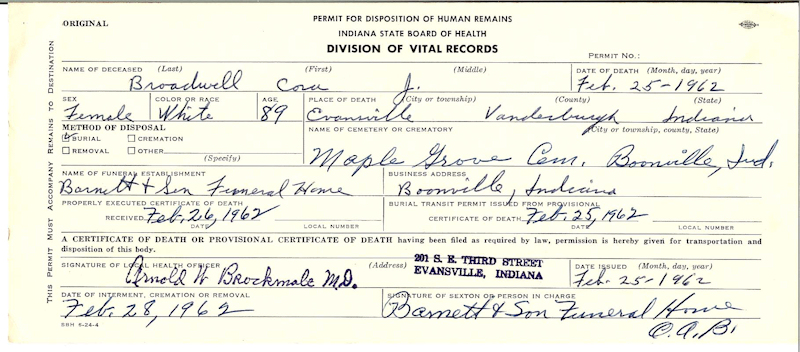 ORIGINAL
PERMIT FOR DISPOSITION OF HUMAN REMAINS
INDIANA STATE BOARD OF HEALTH
DIVISION OF VITAL RECORDS
PERMIT NO.:
THIS PERMIT MUST ACCOMPANY REMAINS TO DESTINATION
NAME OF DECEASED (Last) (First) (Middle) DATE OF DEATH (Month, day, year)
Broadwell Cora J. Feb. 25-1962
SEX COLOR OR RACE AGE PLACE OF DEATH (City or township) (County) (State)
Female White 89 Evansville Vanderburgh Indiana
METHOD OF DISPOSAL NAME OF CEMETERY OR CREMATORY (City or township, county, State)
BURIAL CREMATION
REMOVAL OTHER
(Specify)
Maple Grove Cem. Boonville, Ind.
NAME OF FUNERAL ESTABLISHMENT BUSINESS ADDRESS
Barnett & Son Funeral Home Boonville, Indiana
PROPERLY EXECUTED CERTIFICATE OF DEATH BURIAL TRANSIT PERMIT ISSUED FROM PROVISIONAL
RECEIVED Feb. 26, 1962 CERTIFICATE OF DEATH. Feb. 25, 1962
DATE LOCAL NUMBER DATE LOCAL NUMBER
A CERTIFICATE OF DEATH OR PROVISIONAL CERTIFICATE OF DEATH having been filed as required by law, permission is hereby given for transportation and
disposition of this body.
SIGNATURE OF LOCAL HEALTH OFFICER (Address) 201 S. E. THIRD STREET DATE ISSUED (Month, day, year)
Arnold W Brockmole M.D. EVANSVILLE, INDIANA Feb. 25-1962
DATE OF INTERMENT, CREMATION OR REMOVAL SIGNATURE OF SEXTON OR PERSON IN CHARGE
Feb. 28, 1962 Barnett & Son Funeral Home
O.A.B.
SBH 6-24-4